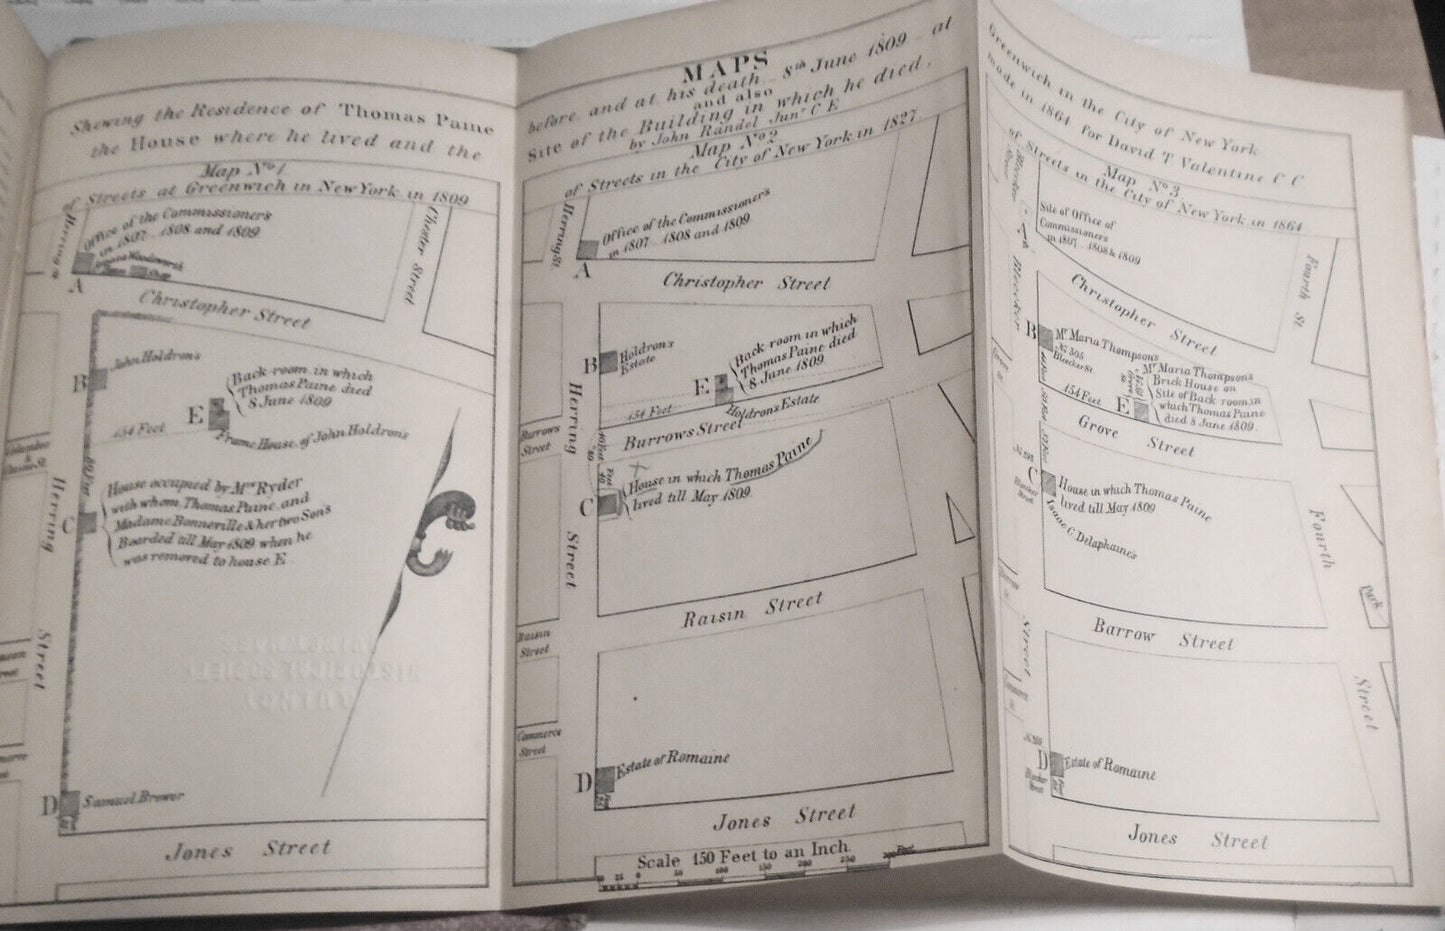 MAPS
Shewing the Residence of Thomas Paine before and at his death 8th June 1809 at Greenwich in the City of New York
and also
the House where he lived and the Site of the Building in which he died, made in 1864 for David T. Valentine C C
by John Randel Junr C E
Map No 1
of Streets at Greenwich in New York in 1809
Herring St
Office of the Commissioner's
in 1807 - 1808 and 1809
Shop
A
Chester Street
Christopher Street
John Holdron's
B
Back room in which
Thomas Paine died
8 June 1809
E
454 Feet
Frame House of John Holdron's
House occupied by Mrs Ryder
with whom Thomas Paine and
Madame Bonneville & her two Son's
Boarded till May 1809 when he
was removed to house E
C
Herring Street
D
Samuel Brower
Jones Street
Map No 2
of Streets in the City of New York in 1827
Herring St
Office of the Commissioner's
in 1807 - 1808 and 1809
A
Christopher Street
B
Holdron's
Estate
Back room in which
Thomas Paine died
8 June 1809
E
454 Feet
Holdron's Estate
Burrows
Street
Burrows Street
Herring Street
C
House in which Thomas Paine
lived till May 1809
Raisin
Street
Raisin Street
Commerce
Street
D
Estate of Romaine
Jones Street
Scale 150 Feet to an Inch.
50 25 0 50 100 150 200 250 300 Feet
Map No 3
of Streets in the City of New York in 1864
Site of Office of
Commissioners
in 1807 - 1808 & 1809
Bleecker
Fourth St
Christopher Street
B
Mr Maria Thompsons
No 305
Bleecker St
Mr Maria Thompsons
Brick House on
Site of Back room in
which Thomas Paine
died 8 June 1809
454 Feet
E
Grove Street
C
House in which Thomas Paine
lived till May 1809
Isaac C Delaphaine's
Fourth Street
Park
Barrow Street
Street
D
Estate of Romaine
Jones Street